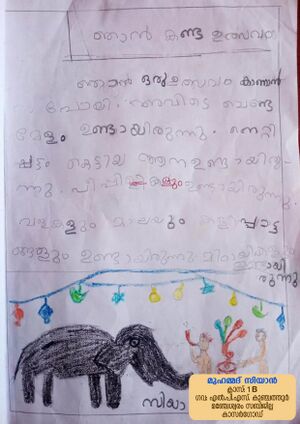 ഞാൻ കണ്ട ഉത്സവം
ഞാൻ ഒരു ഉത്സവം കാണാൻ
പോയി. അവിടെ ചെണ്ട
മേളം ഉണ്ടായിരുന്നു. നെറ്റി
പ്പട്ടം കെട്ടിയ ആന ഉണ്ടായിരു
ന്നു. പീപ്പി കളും ഉണ്ടായിരുന്നു.
വളകളും മാലയും കളിപ്പാട്ട
ങ്ങളും ഉണ്ടായിരുന്നു മിഠായികളും
ഉണ്ടായി
രുന്നു
സിയാ
മുഹമ്മദ് സിയാൻ
ക്ലാസ് 1B
ഗവ എൽ.പി.എസ്. കുഞ്ചത്തൂർ
മഞ്ചേശ്വരം സബ്ജില്ല
കാസർഗോഡ്